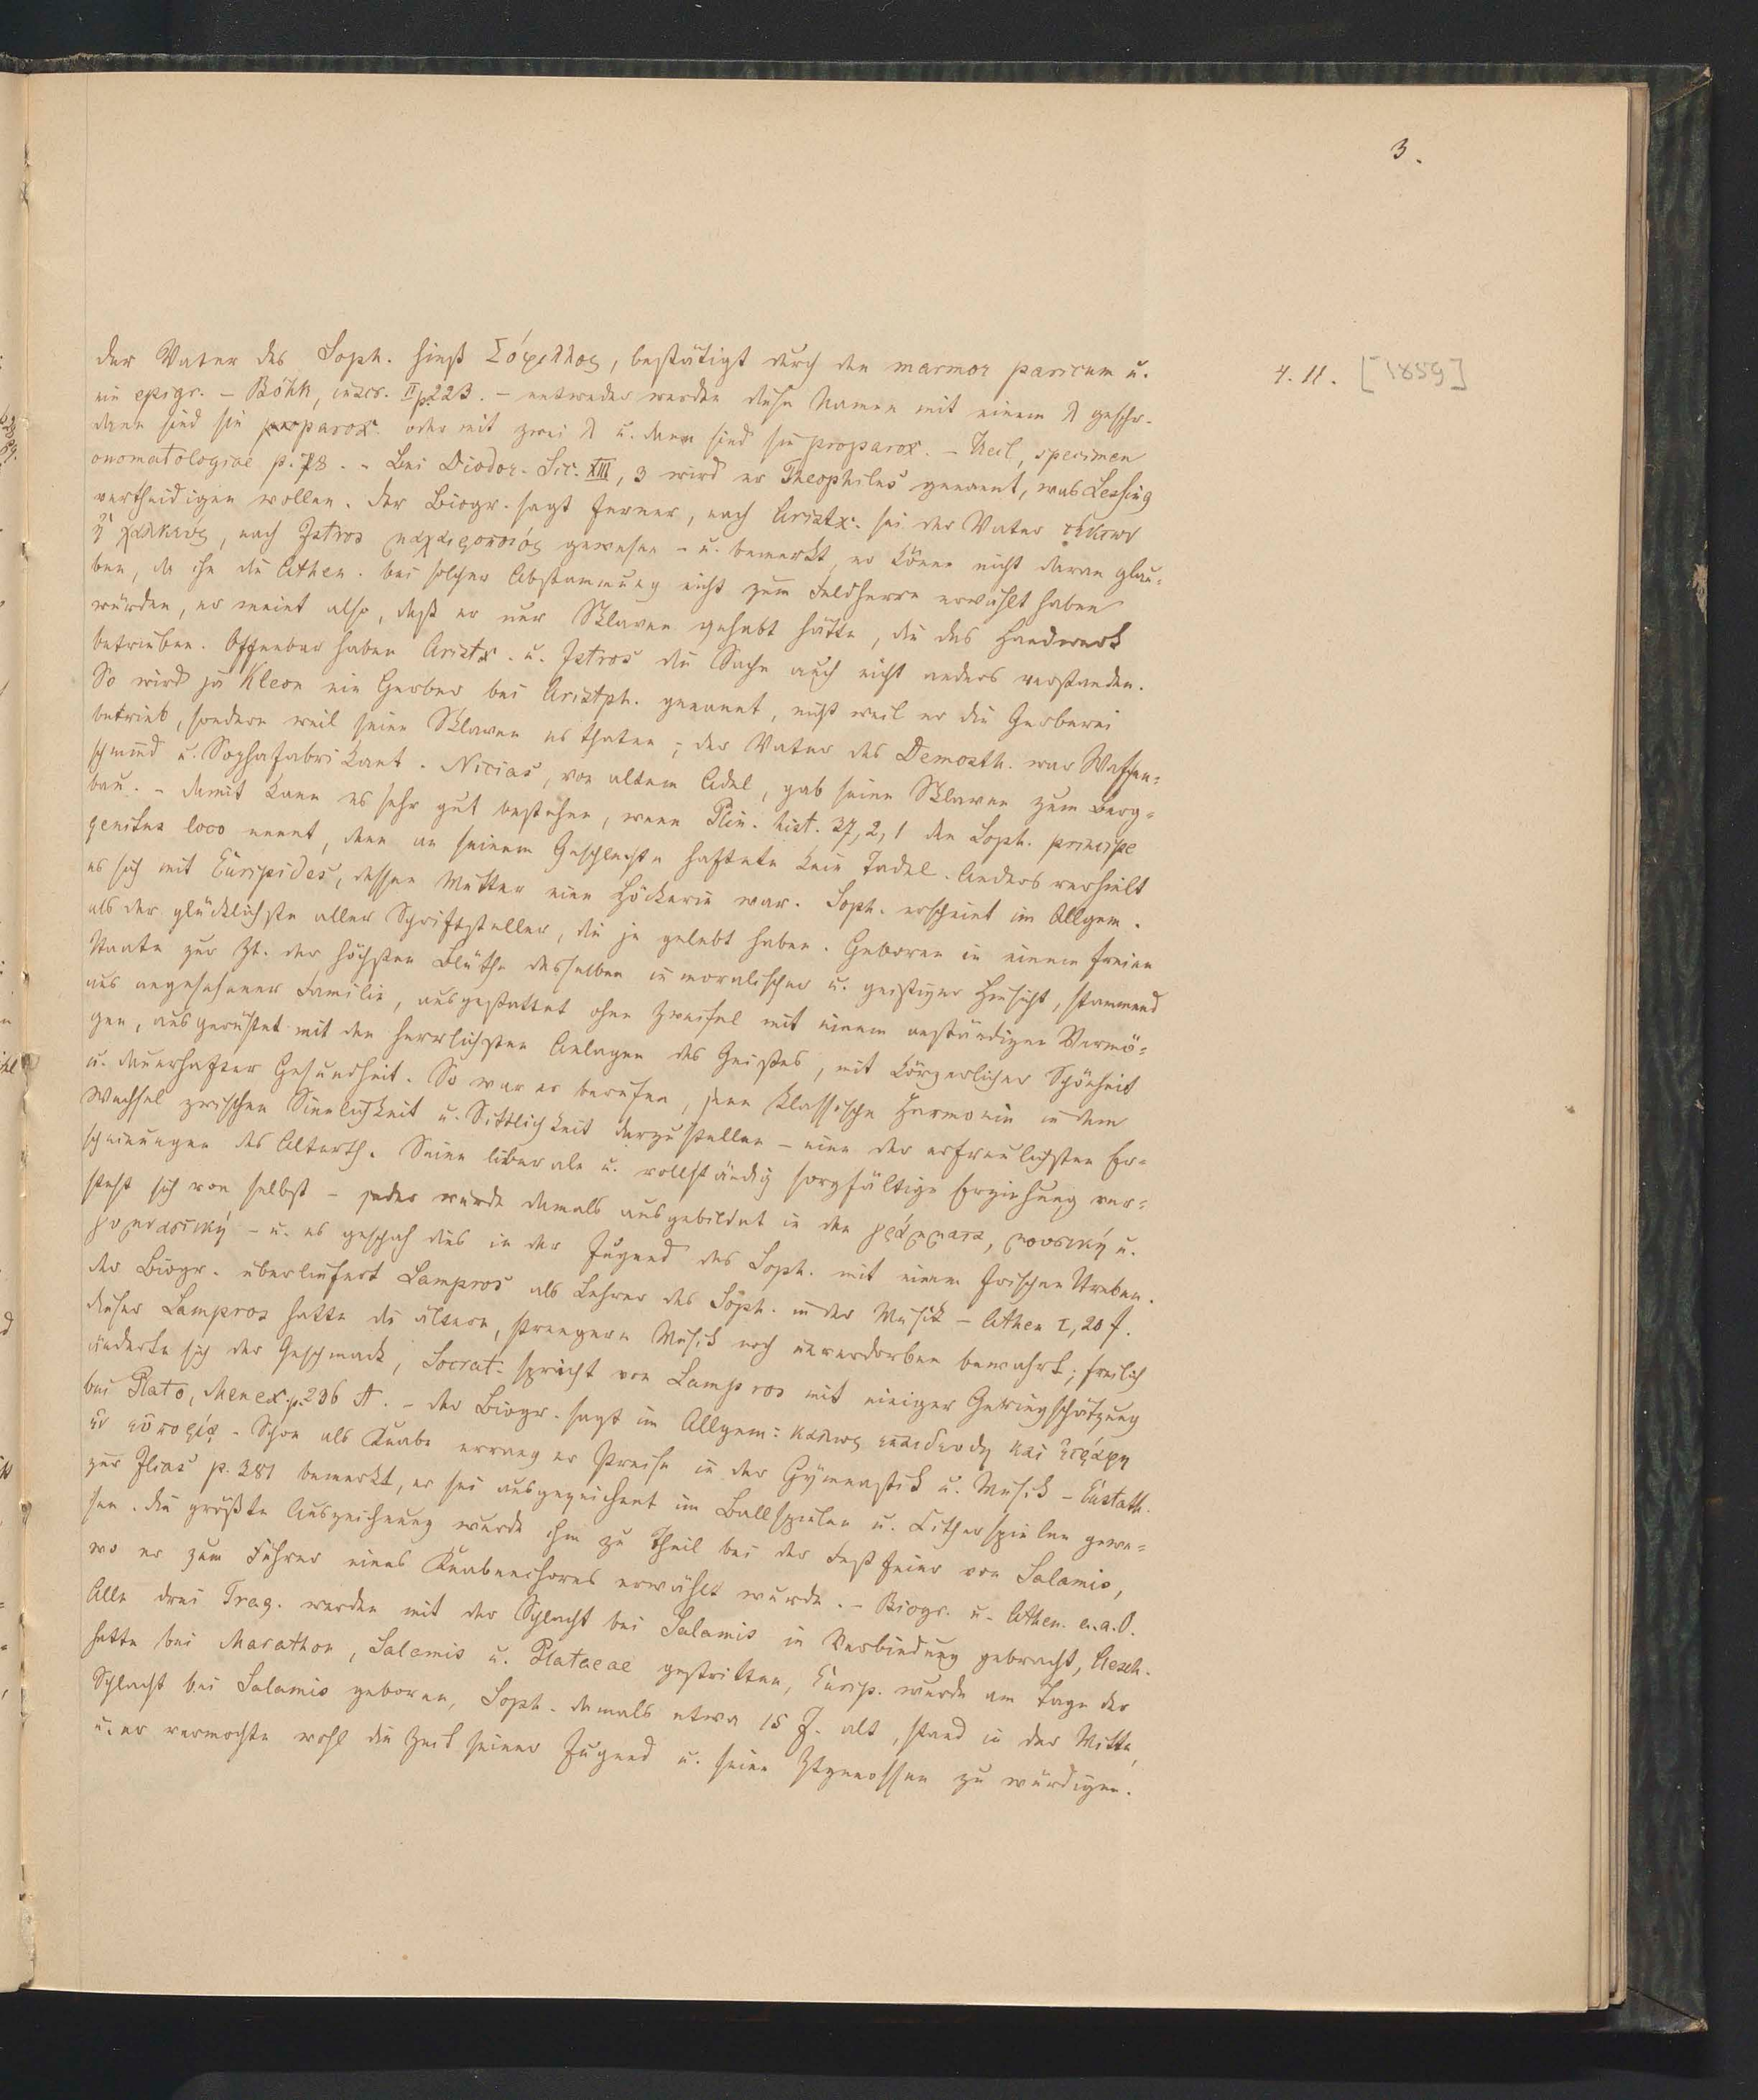 3.
4.11. [1859]
der Vater des Soph. hieß Σόφιλλος, bestätigt durch den marmor parium u.
ein epigr. – Böhk, inscr. II p. 223. – entweder werden diese Namen mit einem λ geschr.
dann sind sie parox. oder mit zwei λ u. dann sind sie proparox. – Keil, specimen
onomatologiae p. 78. – Bei Diodor. Sic. XIII, 3 wird er Theophilus genannt, was Lessing
vertheidigen wollen. Der Biogr. sagt ferner, nach Aristx. sei der Vater τέκτων
ἢ χαλκεύς, nach Istros μαχαιροποιός gewesen – u. bemerkt, er könne nicht daran glau-
ben, da ihn die Athen. bei solcher Abstammung nicht zum Feldherrn erwählt haben
würden, er meint also, daß er nur Sklaven gehabt hätte, die das Handwerk
betrieben. Offenbar haben Aristx. u. Istros die Sache auch nicht anders verstanden.
So wird ja Kleon ein Gerber bei Aristph. genannt, nicht weil er die Gerberei
betrieb, sondern weil seine Sklaven es thaten; der Vater des Demosth. war Waffen-
schmied u. Sophafabrikant. Nicias, von altem Adel, gab seine Sklaven zum Berg-
bau. – damit kann es sehr gut bestehen, wenn Plin. hist. 37, 2, 1 den Soph. principe
genitus loco nennt, denn an seinem Geschlechte haftete kein Tadel. Anders verhielt
es sich mit Euripides, dessen Mutter eine Hökerin war. Soph. erscheint im Allgem.
als der glücklichste aller Schriftsteller, die je gelebt haben. Geboren in einem freien
Staate zur Zt. der höchsten Blüthe desselben in moralischer u. geistiger Hinsicht, stammend
aus angesehener Familie, ausgestattet ohne Zweifel mit einem anständigen Vermö-
gen, ausgerüstet mit den herrlichsten Anlagen des Geistes, mit körperlicher Schönheit
u. dauerhafter Gesundheit. So war er berufen, jene klassische Harmonie in dem
Wechsel zwischen Sinnlichkeit u. Sittlichkeit darzustellen – eine der erfreulichsten Er-
scheinungen des Alterth. Seine liberale u. vollständig sorgfältige Erziehung ver-
steht sich von selbst – jeder wurde damals ausgebildet in den γράμματα, μουσική u.
γυμναστική – u. es geschah dies in der Jugend des Soph. mit einem frischen Streben.
der Biogr. überliefert Lampros als Lehrer des Soph. in der Musik – Athen I, 20 f.
dieser Lampros hatte die ältere, strengere Musik noch unverdorben bewahrt; freilich
änderte sich der Geschmack, Socrat. spricht von Lampros mit einiger Geringschätzung
bei Plato, Menex. p. 236 A. – der Biogr. sagt im Allgem: καλως επαιδευθη και ἐτράφη
ἐν εὐπορίᾳ. Schon als Knabe errang er Preise in der Gymnastik u. Musik – Eustath.
zur Ilias p. 381 bemerkt, er sei ausgezeichnet im Ballspielen u. Citherspielen gewe-
sen. die größte Auszeichnung wurde ihm zu Theil bei der Festfeier von Salamis,
wo er zum Führer eines Knabenchores erwählt wurde. – Biogr. u. Athen. a. a. O.
Alle drei Trag. werden mit der Schlacht bei Salamis in Verbindung gebracht, Aesch.
hatte bei Marathon, Salamis u. Plataeae gestritten, Eurip. wurde am Tage der
Schlacht bei Salamis geboren, Soph. damals etwa 15 J. alt, stand in der Mitte,
u. er vermochte wohl die Zeit seiner Jugend u. seine Ztgenossen zu würdigen.